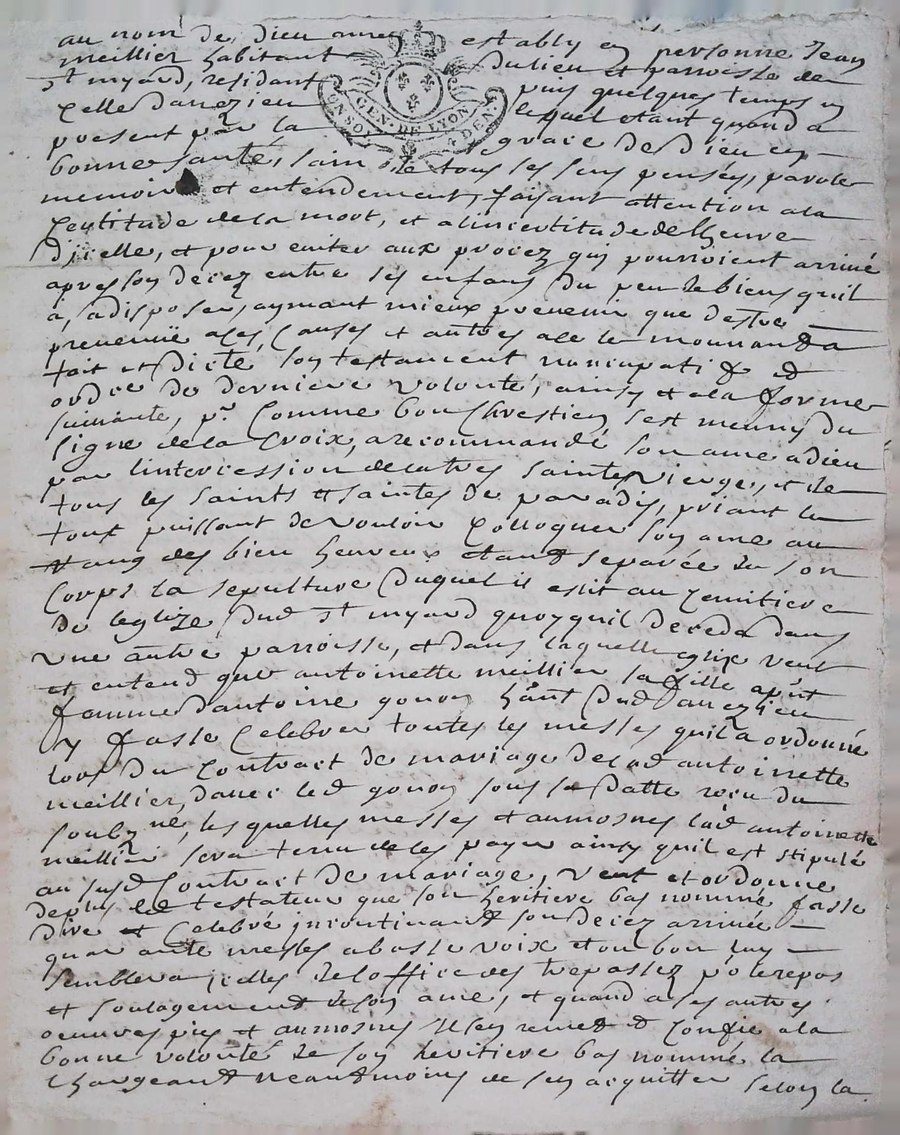 au nom de dieu amen estably en personne Jean
meillier habitant du lieu et parroisse de
st myard, residant puis quelques temps en
celle daveizieu lequel etant quand a
present par la grace de Dieu en
GEN. DE LYON
bonne santé, sain de tous ses sens pensées, parole
memoire et entendement, faisant attention a la
certitude de la mort, et a lincertitude de lheure
dicelle, et pour eviter aux procez qui pourroient arrivé
apres son decez entre ses enfans du peu de biens quil
a, a disposer, aymant mieux prevenir que destre
prevenüe a ses causes et autres a le mouvand a
fait et dicté son testament noncupatif et
ordre de derniere volonté, ainsy et a la forme
suivante, pr. comme bon Chrestien, sest muny du
signe de la Croix, a recommandé son ame a dieu
par lintercession de la tres sainte vierge, et de
tous les saints et saintes de paradis, priant le
tout puissant de vouloir colloquer son ame au
rang des bien heureux etant separée de son
corps la sepulture duquel il eslit au cemitiere
de leglize dud st myard quoyquil deceda dans
une autre parroisse, et dans laquelle eglize veut
et entend que antoinette meillier sa fille apnt
femme dantoine gonon hant dud daveizieu
y fasse celebrer toutes les messes quil a ordonné
lors du contract de mariage de lad antoinette
meillier, avec led gonon sous sa datte receu du
soubzne, les quelles messes et aumosnes lad antoinette
meillier sera tenu de les payer ainsy quil est stipulé
au susd contract de mariage, veut et ordonne
de plus led testateur que son heritiere bas nommé fasse
dire et celebré incontinand son decez arrivée
quarante messes a basse voix et ou bon luy
semblera jcelles de loffice des trepassez p. le repos
et soulagement de son ame, et quand a ses autres
oeuvres pies et aumosnes il sen remet et confie a la
bonne volonté de son heritiere bas nommé la
chargeant neantmoins de sen acquitter selon la